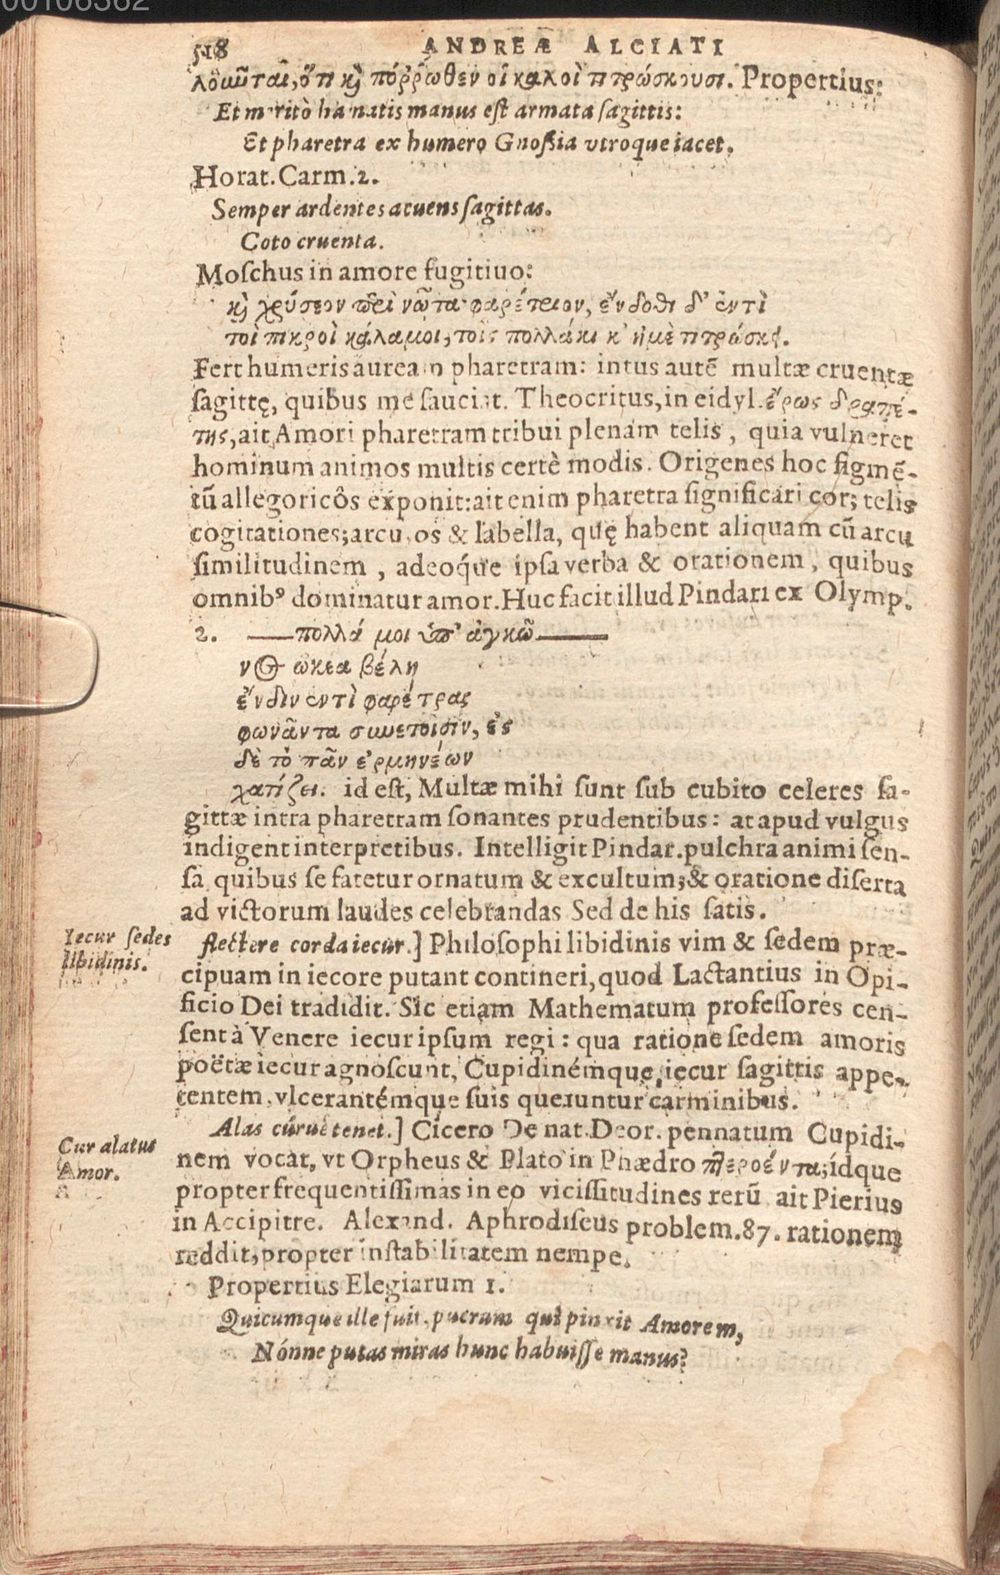 00106362
518 ANDREÆ ALCIATI
λοῦνται, ὅτι καὶ πόῤῥωθεν οἱ καλοὶ τιτρώσκουσι. Propertius:
Et meritò hamatis manus est armata sagittis:
Et pharetra ex humero Gnoßia vtroque iacet.
Horat. Carm. 2.
Semper ardentes acuens sagittas.
Coto cruenta.
Moschus in amore fugitiuo:
καὶ χρύσεον περὶ νῶτα φαρέτριον, ἔνδοθι δ' ἐντὶ
τοὶ πικροὶ κάλαμοι, τοῖς πολλάκι κ' ἠμὲ τιτρώσκει.
Fert humeris auream pharetram: intus autē multæ cruentæ
sagittę, quibus me sauciat. Theocritus, in eidyl. ἔρως δραπέ-
της, ait Amori pharetram tribui plenam telis, quia vulneret
hominum animos multis certè modis. Origenes hoc figmē-
tū allegoricôs exponit: ait enim pharetra significari cor; telis
cogitationes; arcu, os & labella, quę habent aliquam cū arcu
similitudinem, adeoq́ue ipsa verba & orationem, quibus
omnib⁹ dominatur amor. Huc facit illud Pindari ex Olymp.
2. —— πολλά μοι ὑπ' ἀγκῶ ——
νος ὠκεα βέλη
ἔνδον ἐντὶ φαρέτρας
φωνᾶντα συνετοῖσιν, ἐς
δὲ τὸ πᾶν ἑρμηνέων
χατίζει. id est, Multæ mihi sunt sub cubito celeres sa-
gittæ intra pharetram sonantes prudentibus: at apud vulgus
indigent interpretibus. Intelligit Pindar. pulchra animi sen-
sa, quibus se fatetur ornatum & excultum; & oratione diserta
ad victorum laudes celebrandas Sed de his satis.
Iecur sedes libidinis.
flectere corda iecur.] Philosophi libidinis vim & sedem præ-
cipuam in iecore putant contineri, quod Lactantius in Opi-
ficio Dei tradidit. Sic etiam Mathematum professores cen-
sent à Venere iecur ipsum regi: qua ratione sedem amoris
poëtæ iecur agnoscunt, Cupidinémque, iecur sagittis appe-
tentem, vlcerantémque suis queruntur carminibus.
Cur alatus Amor.
Alas cúrue tenet.] Cicero De nat. Deor. pennatum Cupidi-
nem vocat, vt Orpheus & Plato in Phædro πτεροέντα; idque
propter frequentissimas in eo vicissitudines rerū ait Pierius
in Accipitre. Alexand. Aphrodiseus problem. 87. rationem
reddit, propter instabilitatem nempe.
Propertius Elegiarum 1.
Quicumque ille fuit, puerum qui pinxit Amorem,
Nónne putas miras hunc habuisse manus?